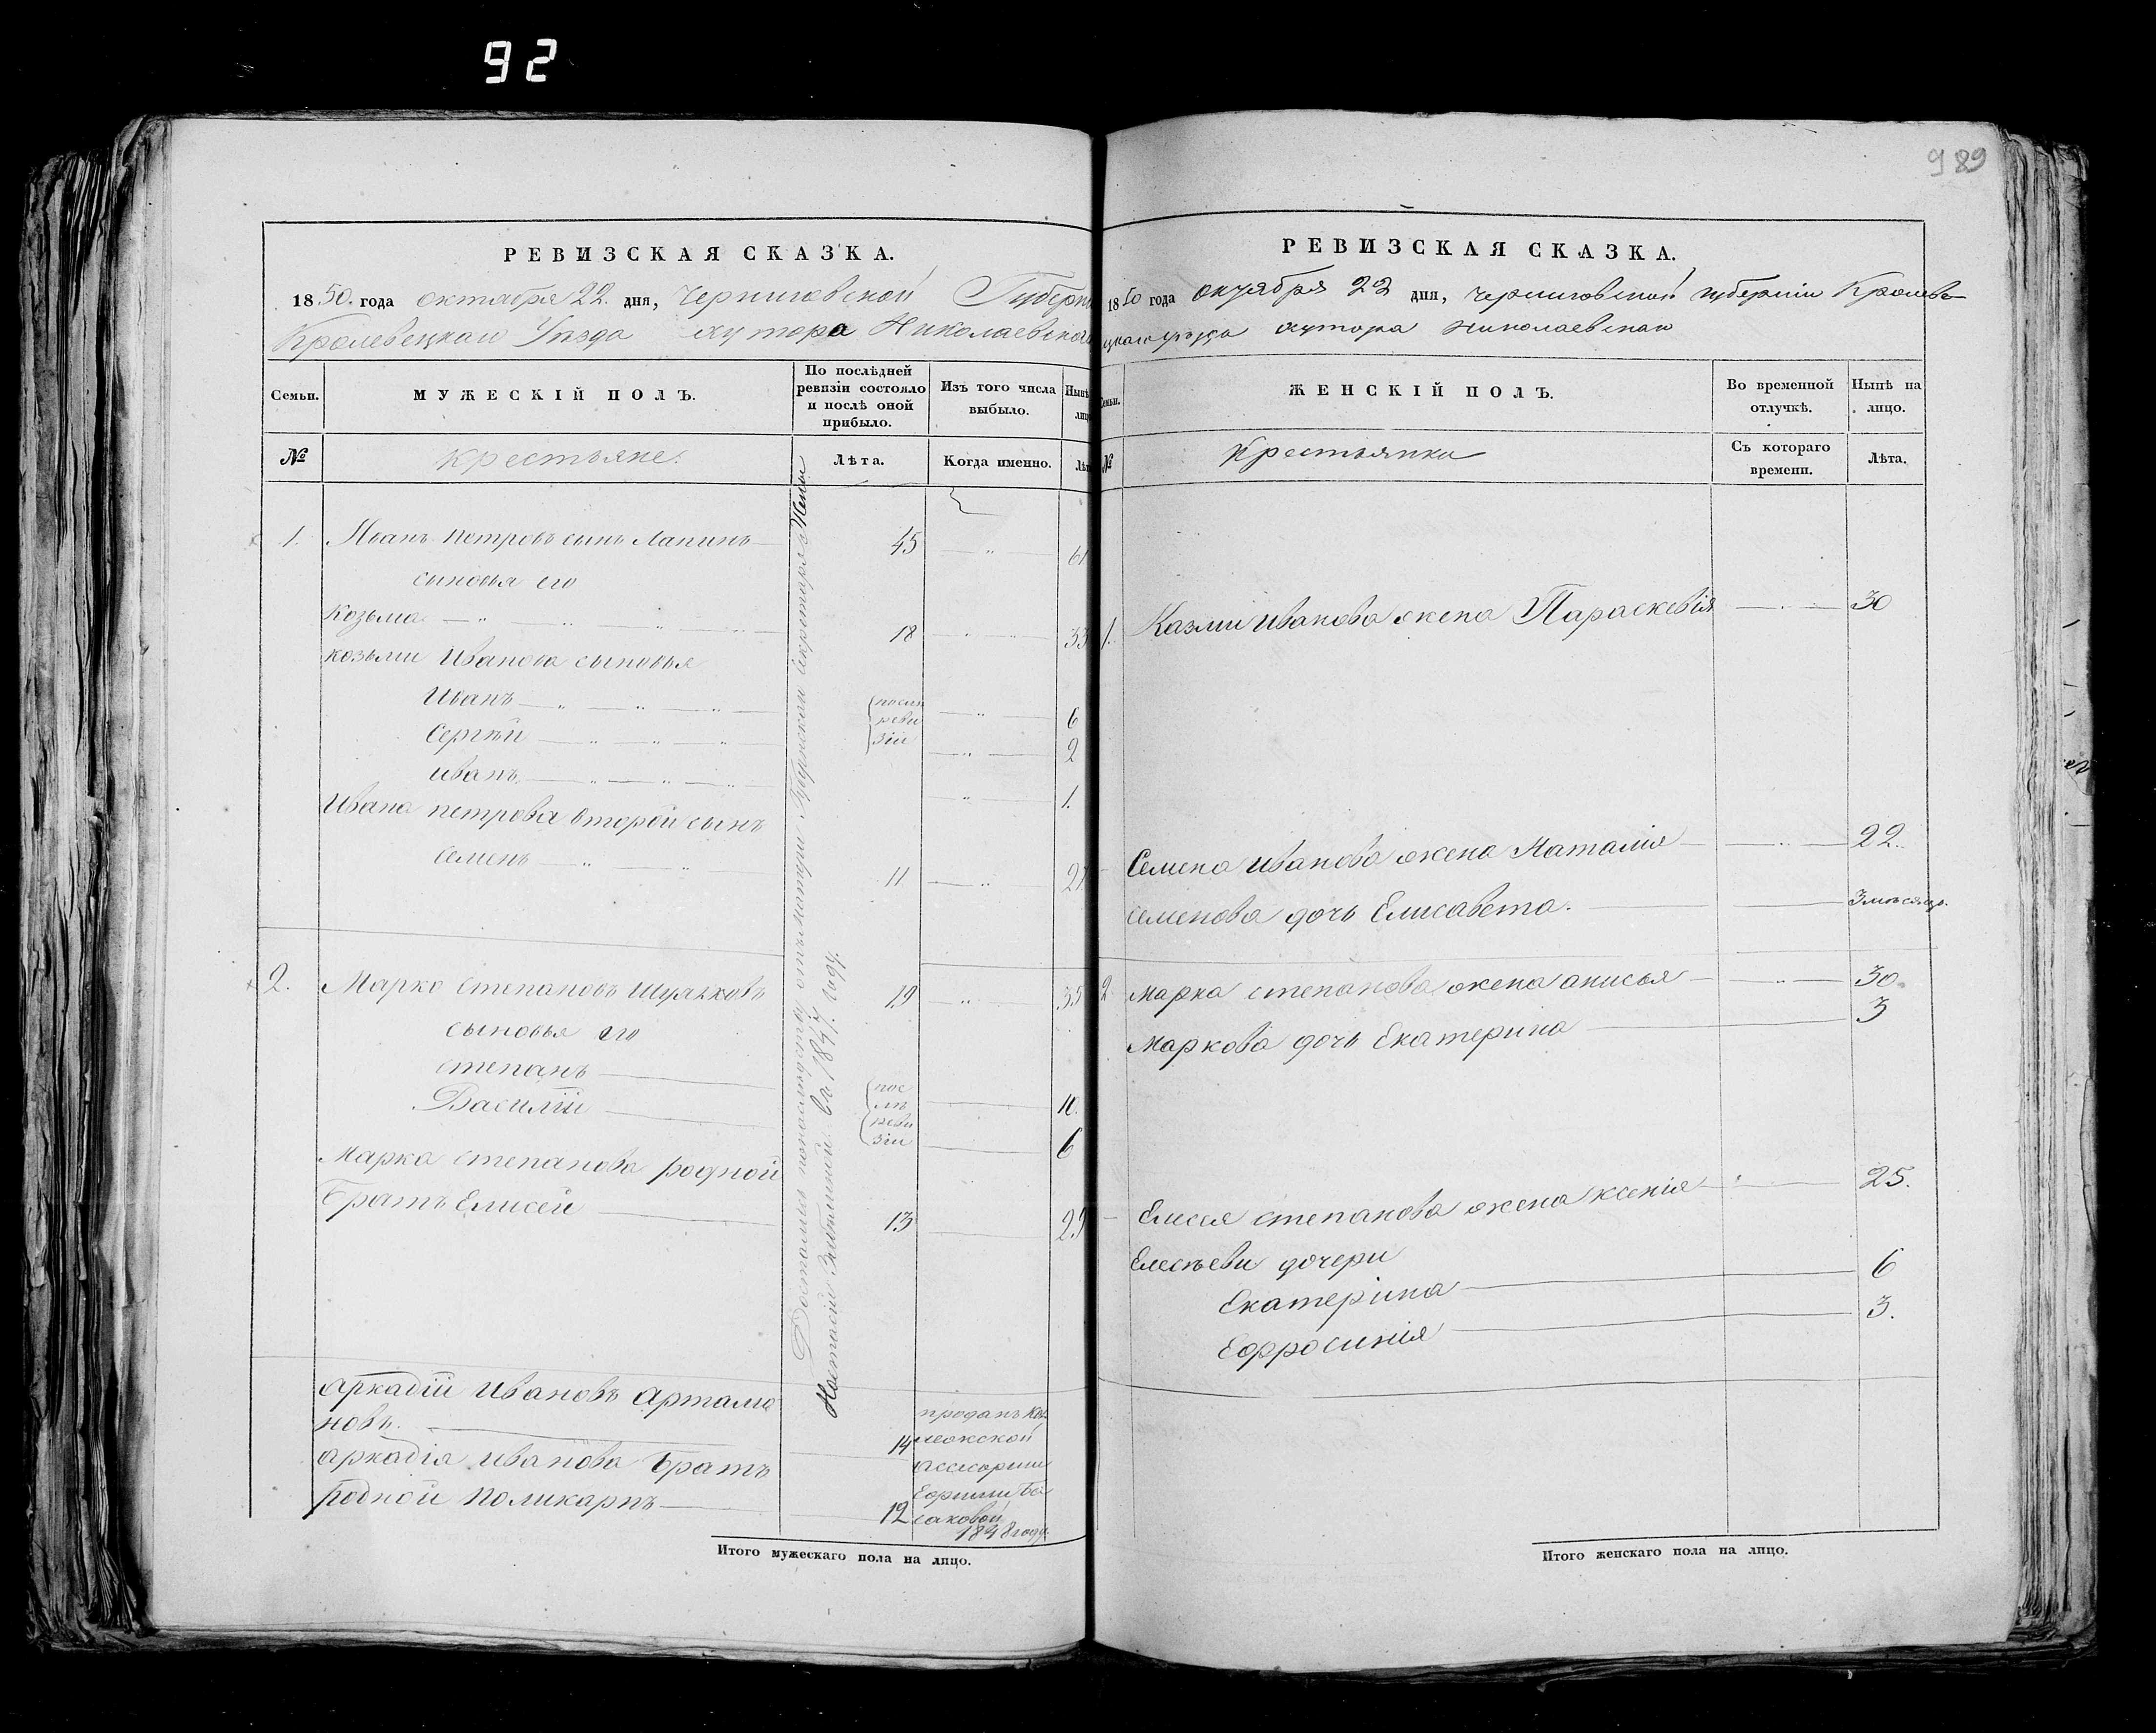 92
989
РЕВИЗСКАЯ СКАЗКА.
1850. года октября 22. дня, Черниговской Губерніи
Кролевецкаго Уезда хутора Николаевскаго
Семьи.
МУЖЕСКІЙ ПОЛЪ.
По послѣдней ревизіи состояло и послѣ оной прибыло.
Изъ того числа выбыло.
Нынѣ лицо
№
крестьяне.
Лѣта.
Когда именно.
Лѣта
1. Иванъ Петровъ сынъ Лапинъ 45 — " — 61
сыновья его
Козьма — " — " — " 18 " " 33
козьмы Иванова сыновья
Иванъ — " — " — " — " — 6
Сергѣй — " — " — " — " — 2
иванъ — " — " — " — " — 1.
{после реви зіи
Ивана петрова второй сынъ
семенъ — " — " 11 — " — 27
2. Марко степановъ 19 — " — 35
сыновья его
степанъ — 10.
Василій — 6
{пос лѣ реви зіи
Марка степанова родной
братъ Елисей — 13 29
аркадій ивановъ артамо
новъ. — 14
аркадія иванова братъ
родной поликарпъ — 12
проданъ кол
лежской
ассесорши
1848 году.
Достался по имуществу отъ матери Губернскаго Секретаря Жены
Настасіи во 1847. году.
Итого мужескаго пола на лицо.
РЕВИЗСКАЯ СКАЗКА.
1850 года октября 22 дня, черниговской губерніи Кролеве
цкаго уезда хутора николаевскаго
Семьи.
ЖЕНСКІЙ ПОЛЪ.
Во временной отлучкѣ.
Нынѣ на лицо.
№
Крестьянки
Съ котораго времени.
Лѣта.
1. Казми иванова жена Параскевія — " — 30
Семена иванова жена Наталія — " — 22.
семенова дочь Елисавета. — 3 месяцо.
2 марка степанова жена анисья — " — 30.
Маркова дочь Екатерина — 3
Елисея степанова жена ксенія — " — 25.
Елесѣеви дочери
Екатерина — 6
Ефросинія — 3.
Итого женскаго пола на лицо.